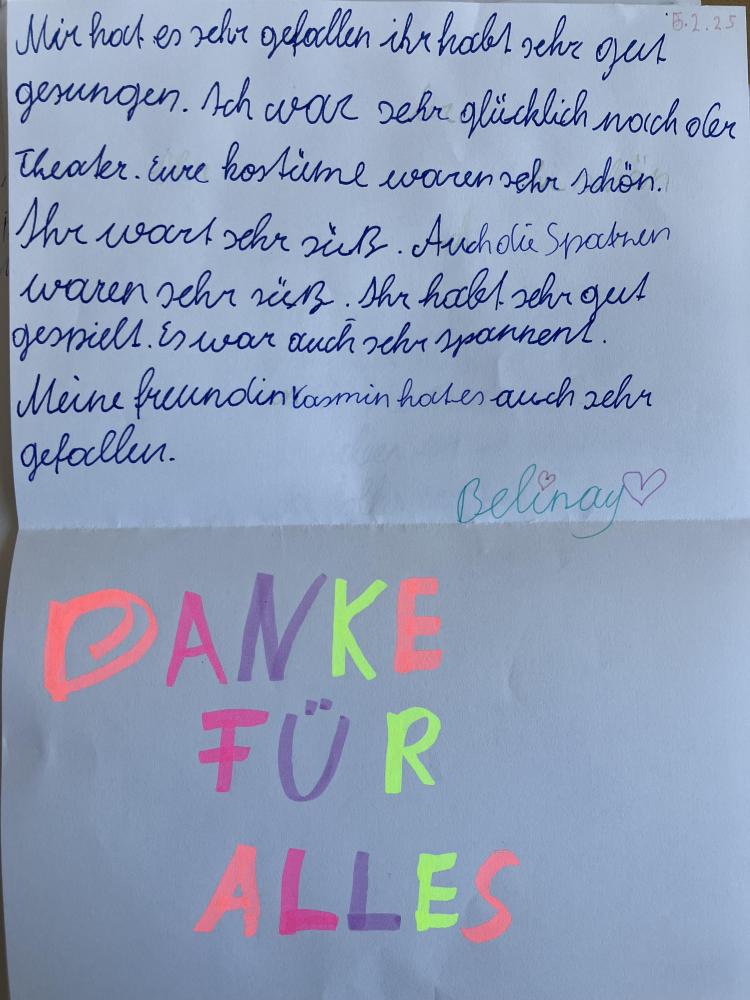 5.2.25
Mir hat es sehr gefallen ihr habt sehr gut
gesungen. Ich war sehr glücklich nach der
Theater. Eure kostüme waren sehr schön.
Ihr wart sehr süß. Auch die Spatzen
waren sehr süß. Ihr habt sehr gut
gespielt. Es war auch sehr spannent.
Meine freundin Yasmin hat es auch sehr
gefallen.
Belinay
DANKE
FÜR
ALLES